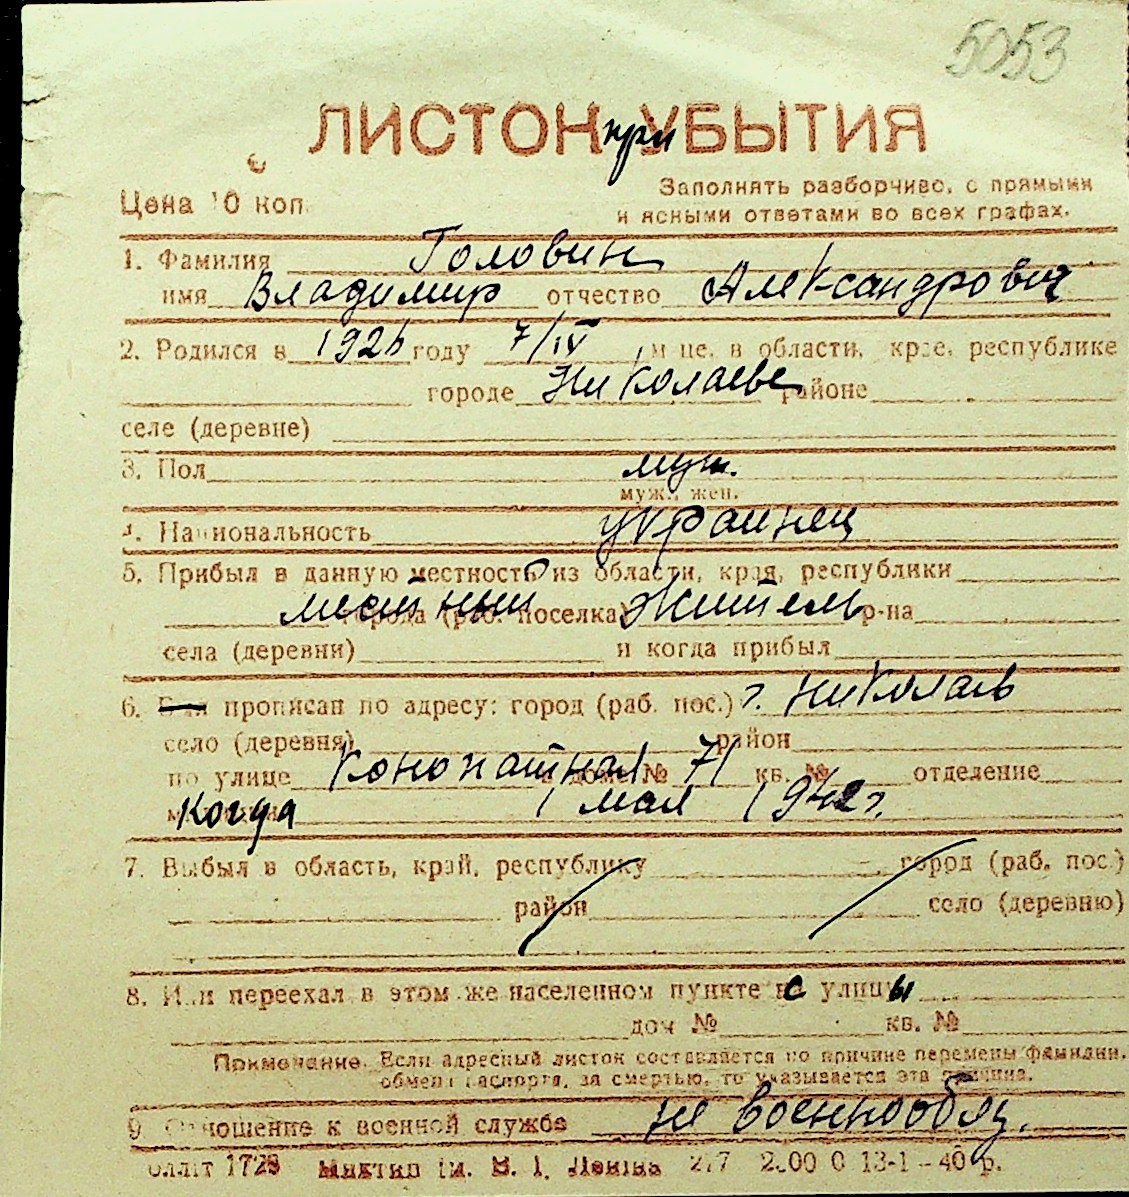 5053
ЛИСТОК при УБЫТИЯ
Цена 10 коп.
Заполнять разборчиво, с прямыми
и ясными ответами во всех графах.
1. Фамилия Головин
имя Владимир отчество Александрович
2. Родился в 1926 году 7/IV м-це, в области, крае, республике
городе Николаеве районе
селе (деревне)
3. Пол муж.
муж., жен.
4. Национальность украинец
5. Прибыл в данную местность из области, края, республики
местный города (раб. поселка) житель р-на
села (деревни) и когда прибыл
6. Был прописан по адресу: город (раб. пос.) г. Николаев
село (деревня) район
по улице Конопатная дом № 71 кв. № отделение
когда 1 мая 1942 г.
7. Выбыл в область, край, республику город (раб. пос.)
район село (деревню)
8. Или переехал в этом же населенном пункте с улицы
дом № кв. №
Примечание. Если адресный листок составляется по причине перемены фамилии,
обмена паспорта, за смертью, то указывается эта причина.
9 Отношение к военной службе не военнообяз.
1728 им. В. І. Леніна 13-1-40 р.